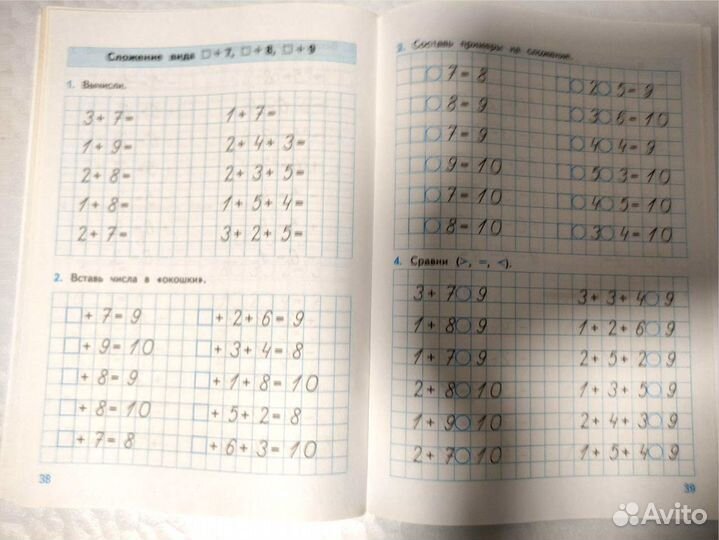 Сложение вида □+7, □+8, □+9
1. Вычисли.
3+7= 1+7=
1+9= 2+4+3=
2+8= 2+3+5=
1+8= 1+5+4=
2+7= 3+2+5=
2. Вставь числа в «окошки».
□+7=9 □+2+6=9
□+9=10 □+3+4=8
□+8=9 □+1+8=10
□+8=10 □+5+2=8
□+7=8 □+6+3=10
38
3. Составь примеры на сложение.
□○7=8 □○2○5=9
□○8=9 □○3○6=10
□○7=9 □○4○4=9
□○9=10 □○5○3=10
□○7=10 □○4○5=10
□○8=10 □○3○4=10
4. Сравни (>, =, <).
3+7○9 3+3+4○9
1+8○9 1+2+6○9
1+7○9 2+5+2○9
2+8○10 1+3+5○9
1+9○10 2+4+3○9
2+7○10 1+5+4○9
39
Avito